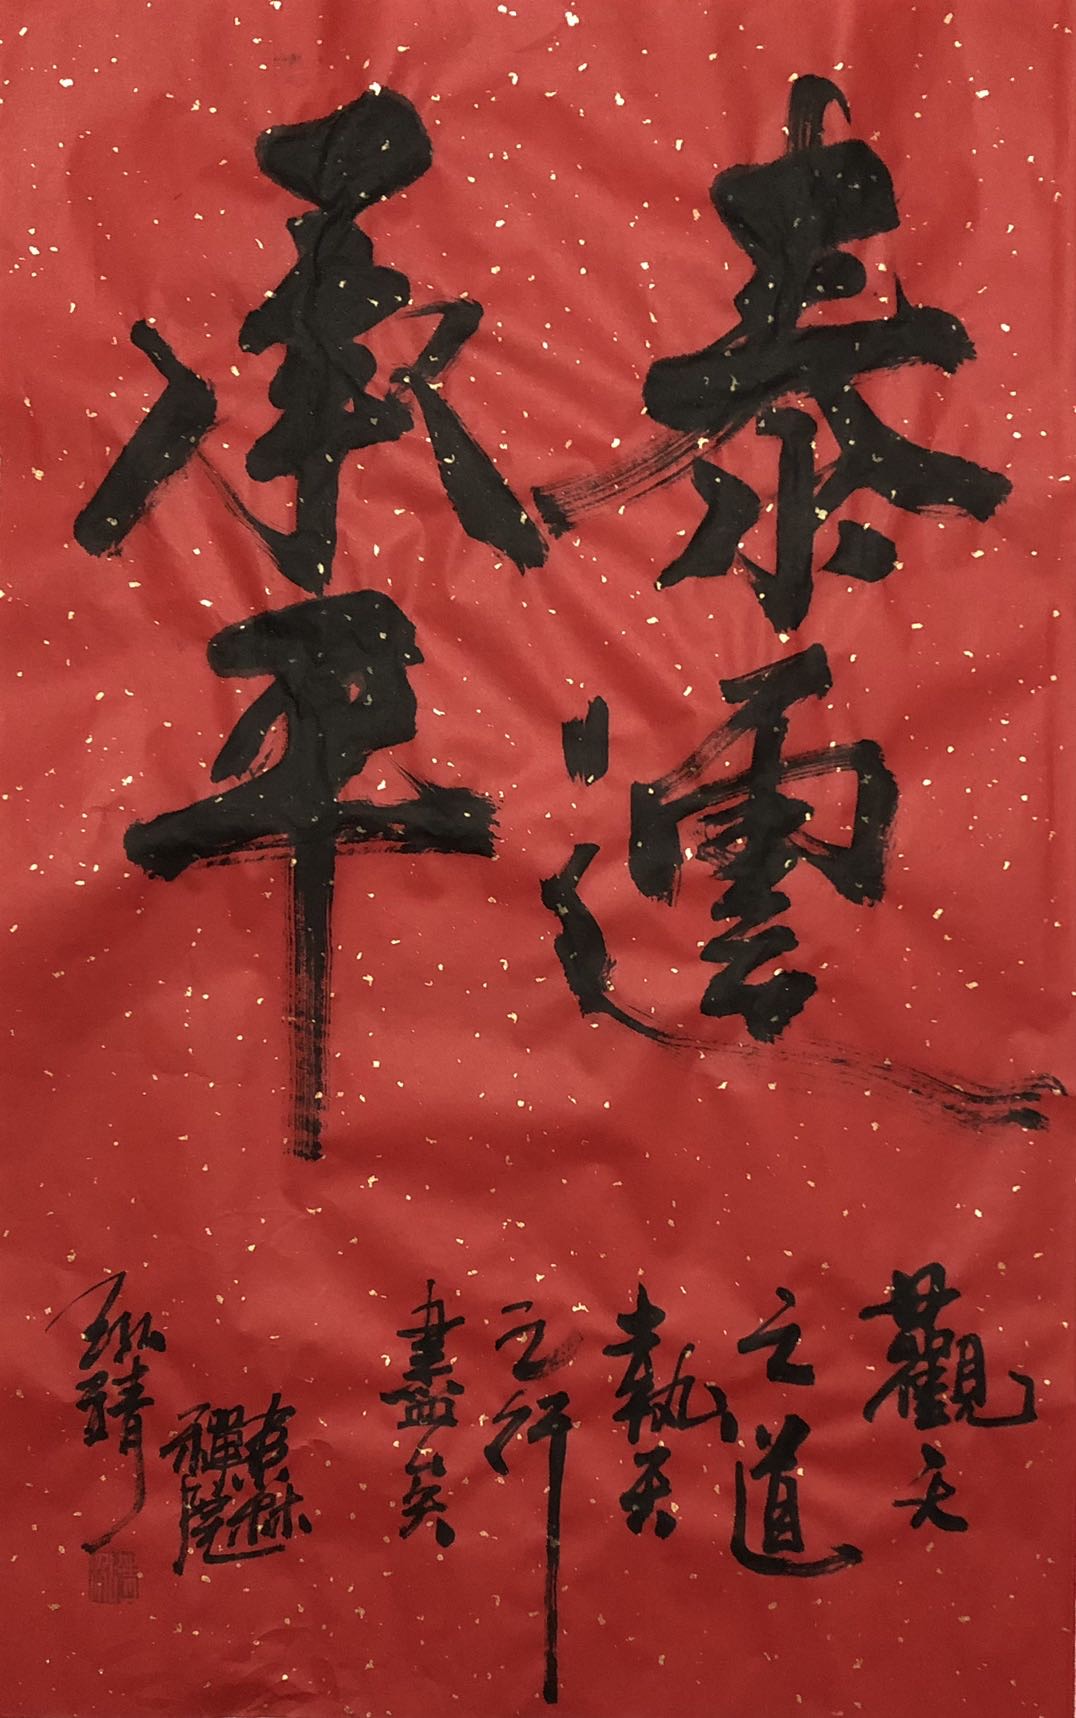 泰運
承平
觀天
之道
執天
之行
盡矣
禪院